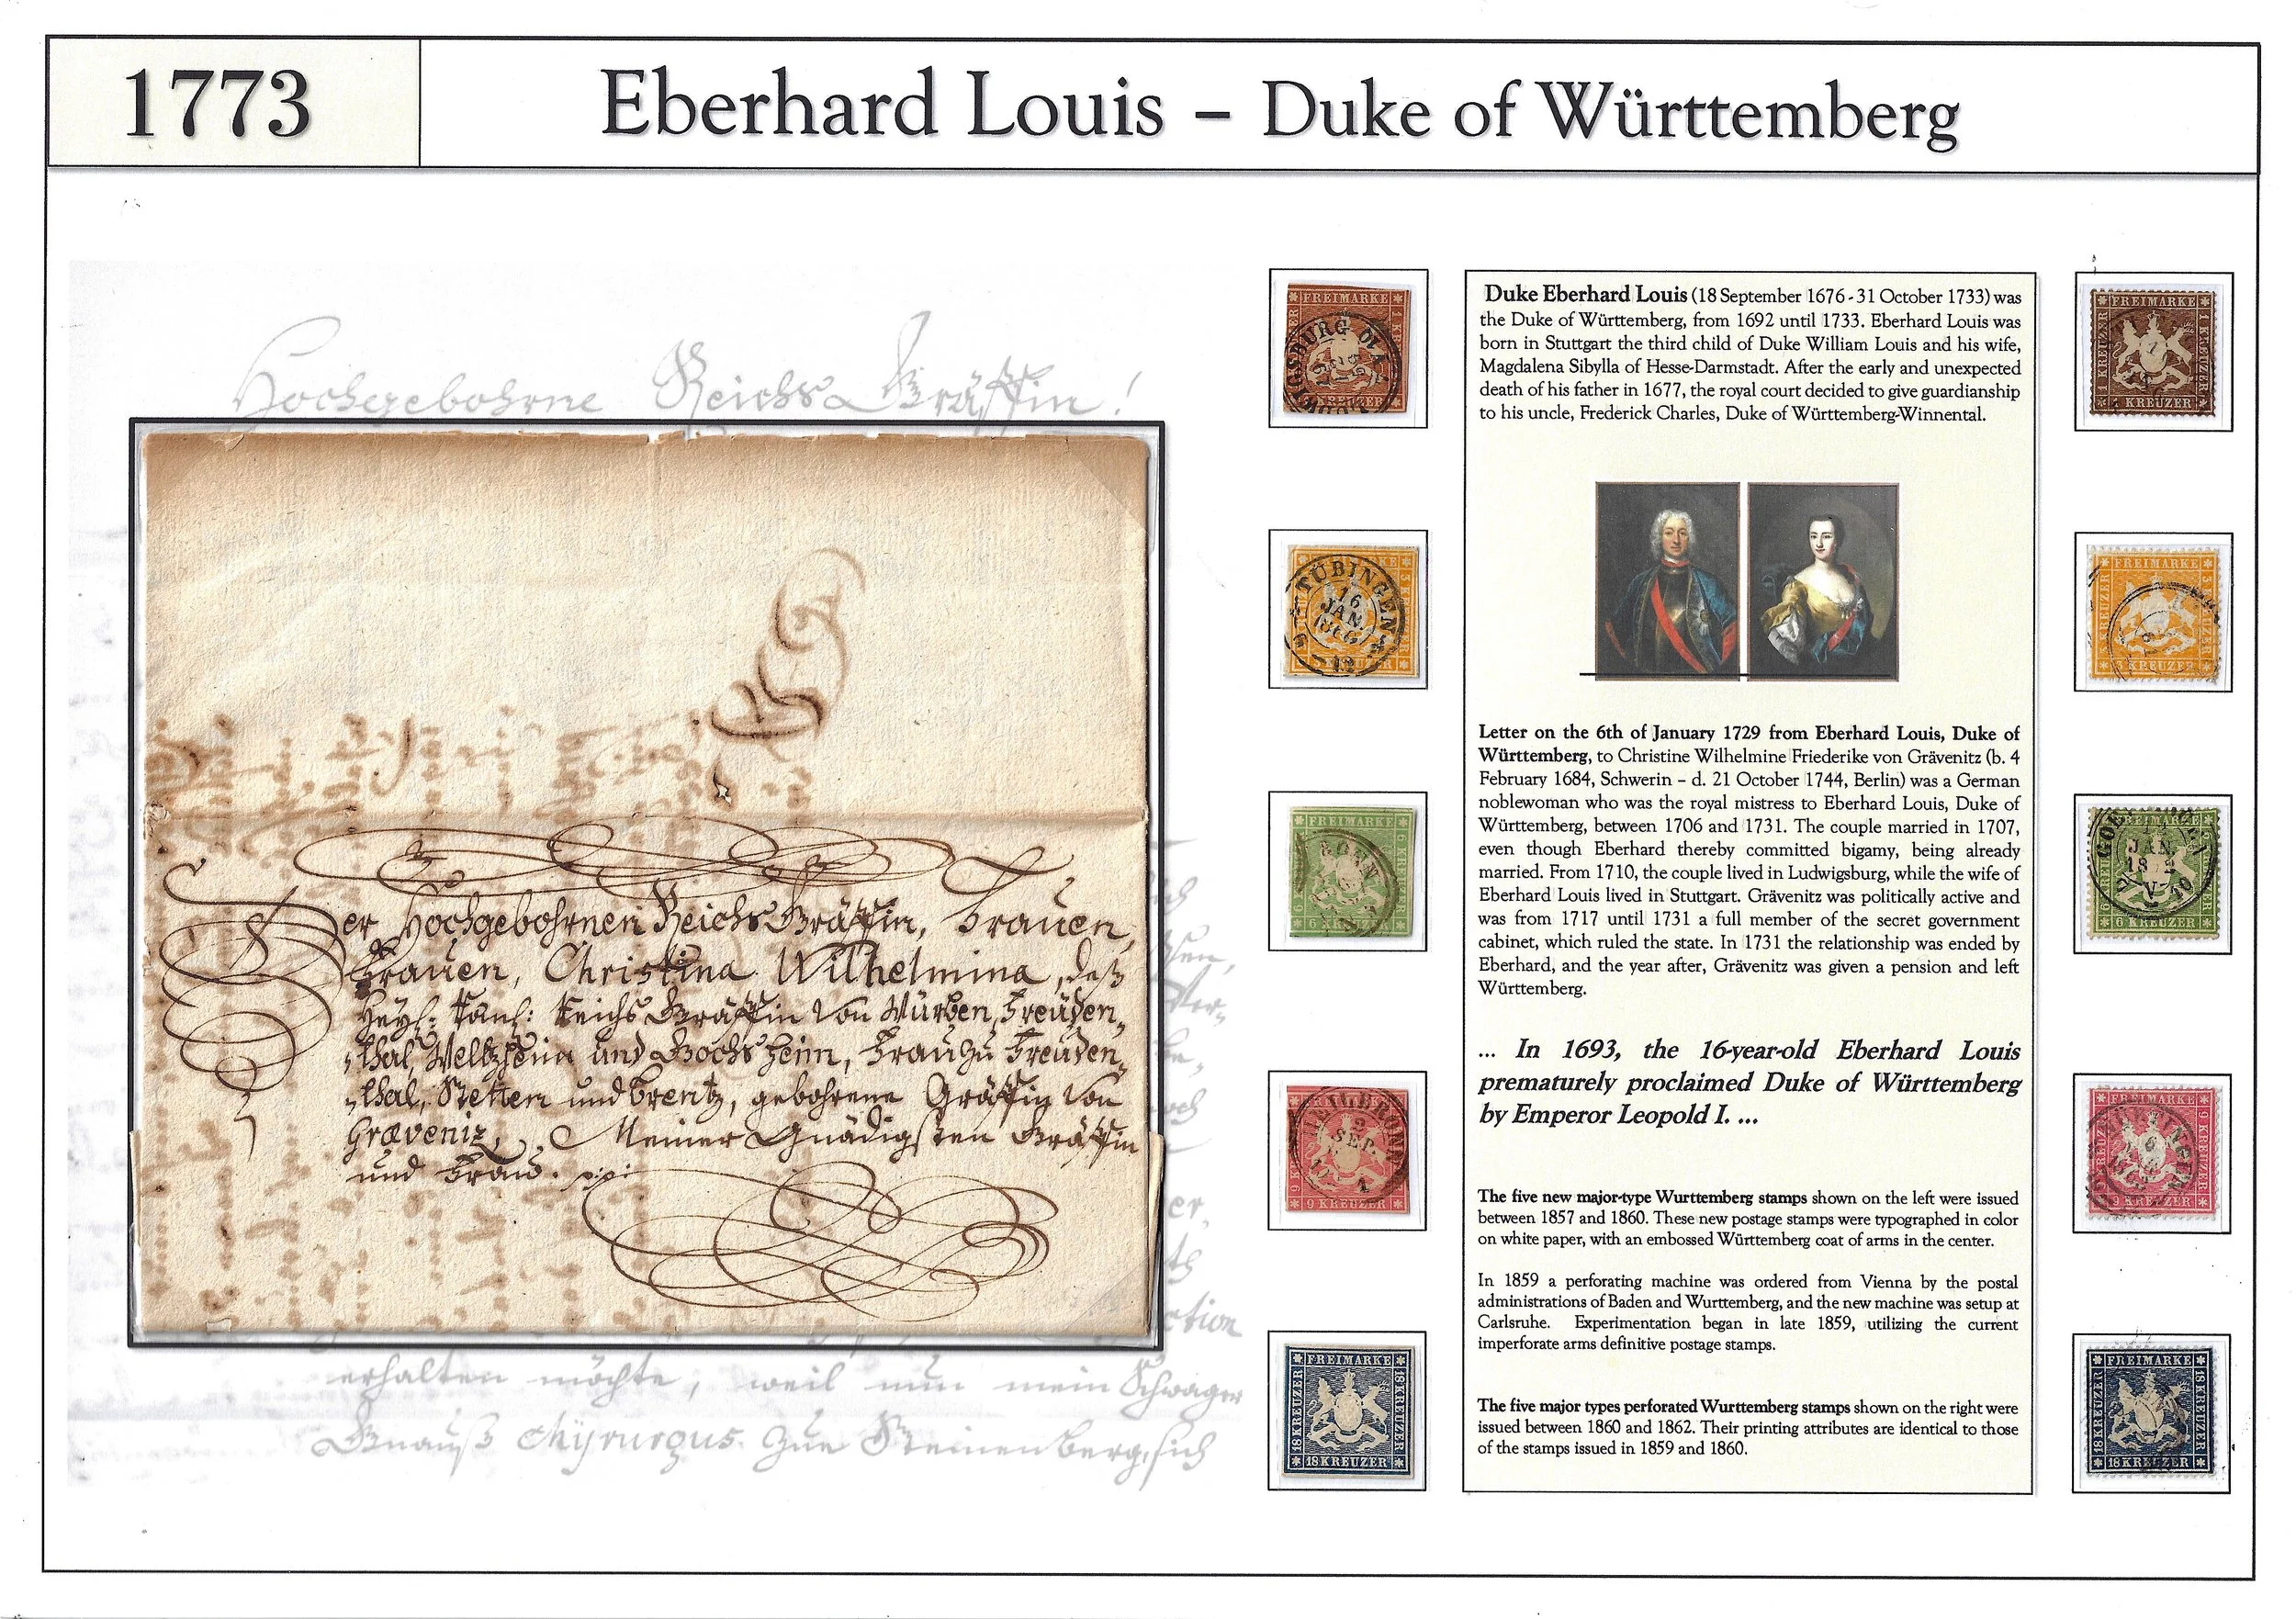 1773
Eberhard Louis – Duke of Württemberg
Hochgebohrne Reichs Gräffin!
Der Hochgebohrnen Reichs Gräffin, Frauen,
Frauen, Christina Wilhelmina, deß
Heyl: Röm: Reichs Gräffin von Würben, Freuden„
„thal, Weltzheim und Gochsheim, Frau zu Freuden„
„thal, Stetten und Brentz, gebohrene Gräffin von
Græveniz, Meiner Gnädigsten Gräffin
und Frau.
ction
erhalten möchte, weil nun mein Schwager
Chyrurgus zue Steinenberg, sich
FREIMARKE
1 KREUZER
TÜBINGEN
16
JAN
3 KREUZER
FREIMARKE
6 KREUZER
6 KREUZER
HEILBRONN
2
SEP.
9 KREUZER
9 KREUZER
FREIMARKE
18 KREUZER
18 KREUZER
18 KREUZER
Duke Eberhard Louis (18 September 1676 - 31 October 1733) was
the Duke of Württemberg, from 1692 until 1733. Eberhard Louis was
born in Stuttgart the third child of Duke William Louis and his wife,
Magdalena Sibylla of Hesse-Darmstadt. After the early and unexpected
death of his father in 1677, the royal court decided to give guardianship
to his uncle, Frederick Charles, Duke of Württemberg-Winnental.
Letter on the 6th of January 1729 from Eberhard Louis, Duke of
Württemberg, to Christine Wilhelmine Friederike von Grävenitz (b. 4
February 1684, Schwerin – d. 21 October 1744, Berlin) was a German
noblewoman who was the royal mistress to Eberhard Louis, Duke of
Württemberg, between 1706 and 1731. The couple married in 1707,
even though Eberhard thereby committed bigamy, being already
married. From 1710, the couple lived in Ludwigsburg, while the wife of
Eberhard Louis lived in Stuttgart. Grävenitz was politically active and
was from 1717 until 1731 a full member of the secret government
cabinet, which ruled the state. In 1731 the relationship was ended by
Eberhard, and the year after, Grävenitz was given a pension and left
Württemberg.
... In 1693, the 16-year-old Eberhard Louis
prematurely proclaimed Duke of Württemberg
by Emperor Leopold I. ...
The five new major-type Wurttemberg stamps shown on the left were issued
between 1857 and 1860. These new postage stamps were typographed in color
on white paper, with an embossed Württemberg coat of arms in the center.
In 1859 a perforating machine was ordered from Vienna by the postal
administrations of Baden and Wurttemberg, and the new machine was setup at
Carlsruhe. Experimentation began in late 1859, utilizing the current
imperforate arms definitive postage stamps.
The five major types perforated Wurttemberg stamps shown on the right were
issued between 1860 and 1862. Their printing attributes are identical to those
of the stamps issued in 1859 and 1860.
FREIMARKE
1 KREUZER
1 KREUZER
KREUZER
FREIMARKE
3 KREUZER
3 KREUZER
FREIMARKE
JAN
6 KREUZER
FREIMARKE
9 KREUZER
9 KREUZER
FREIMARKE
18 KREUZER
18 KREUZER
18 KREUZER